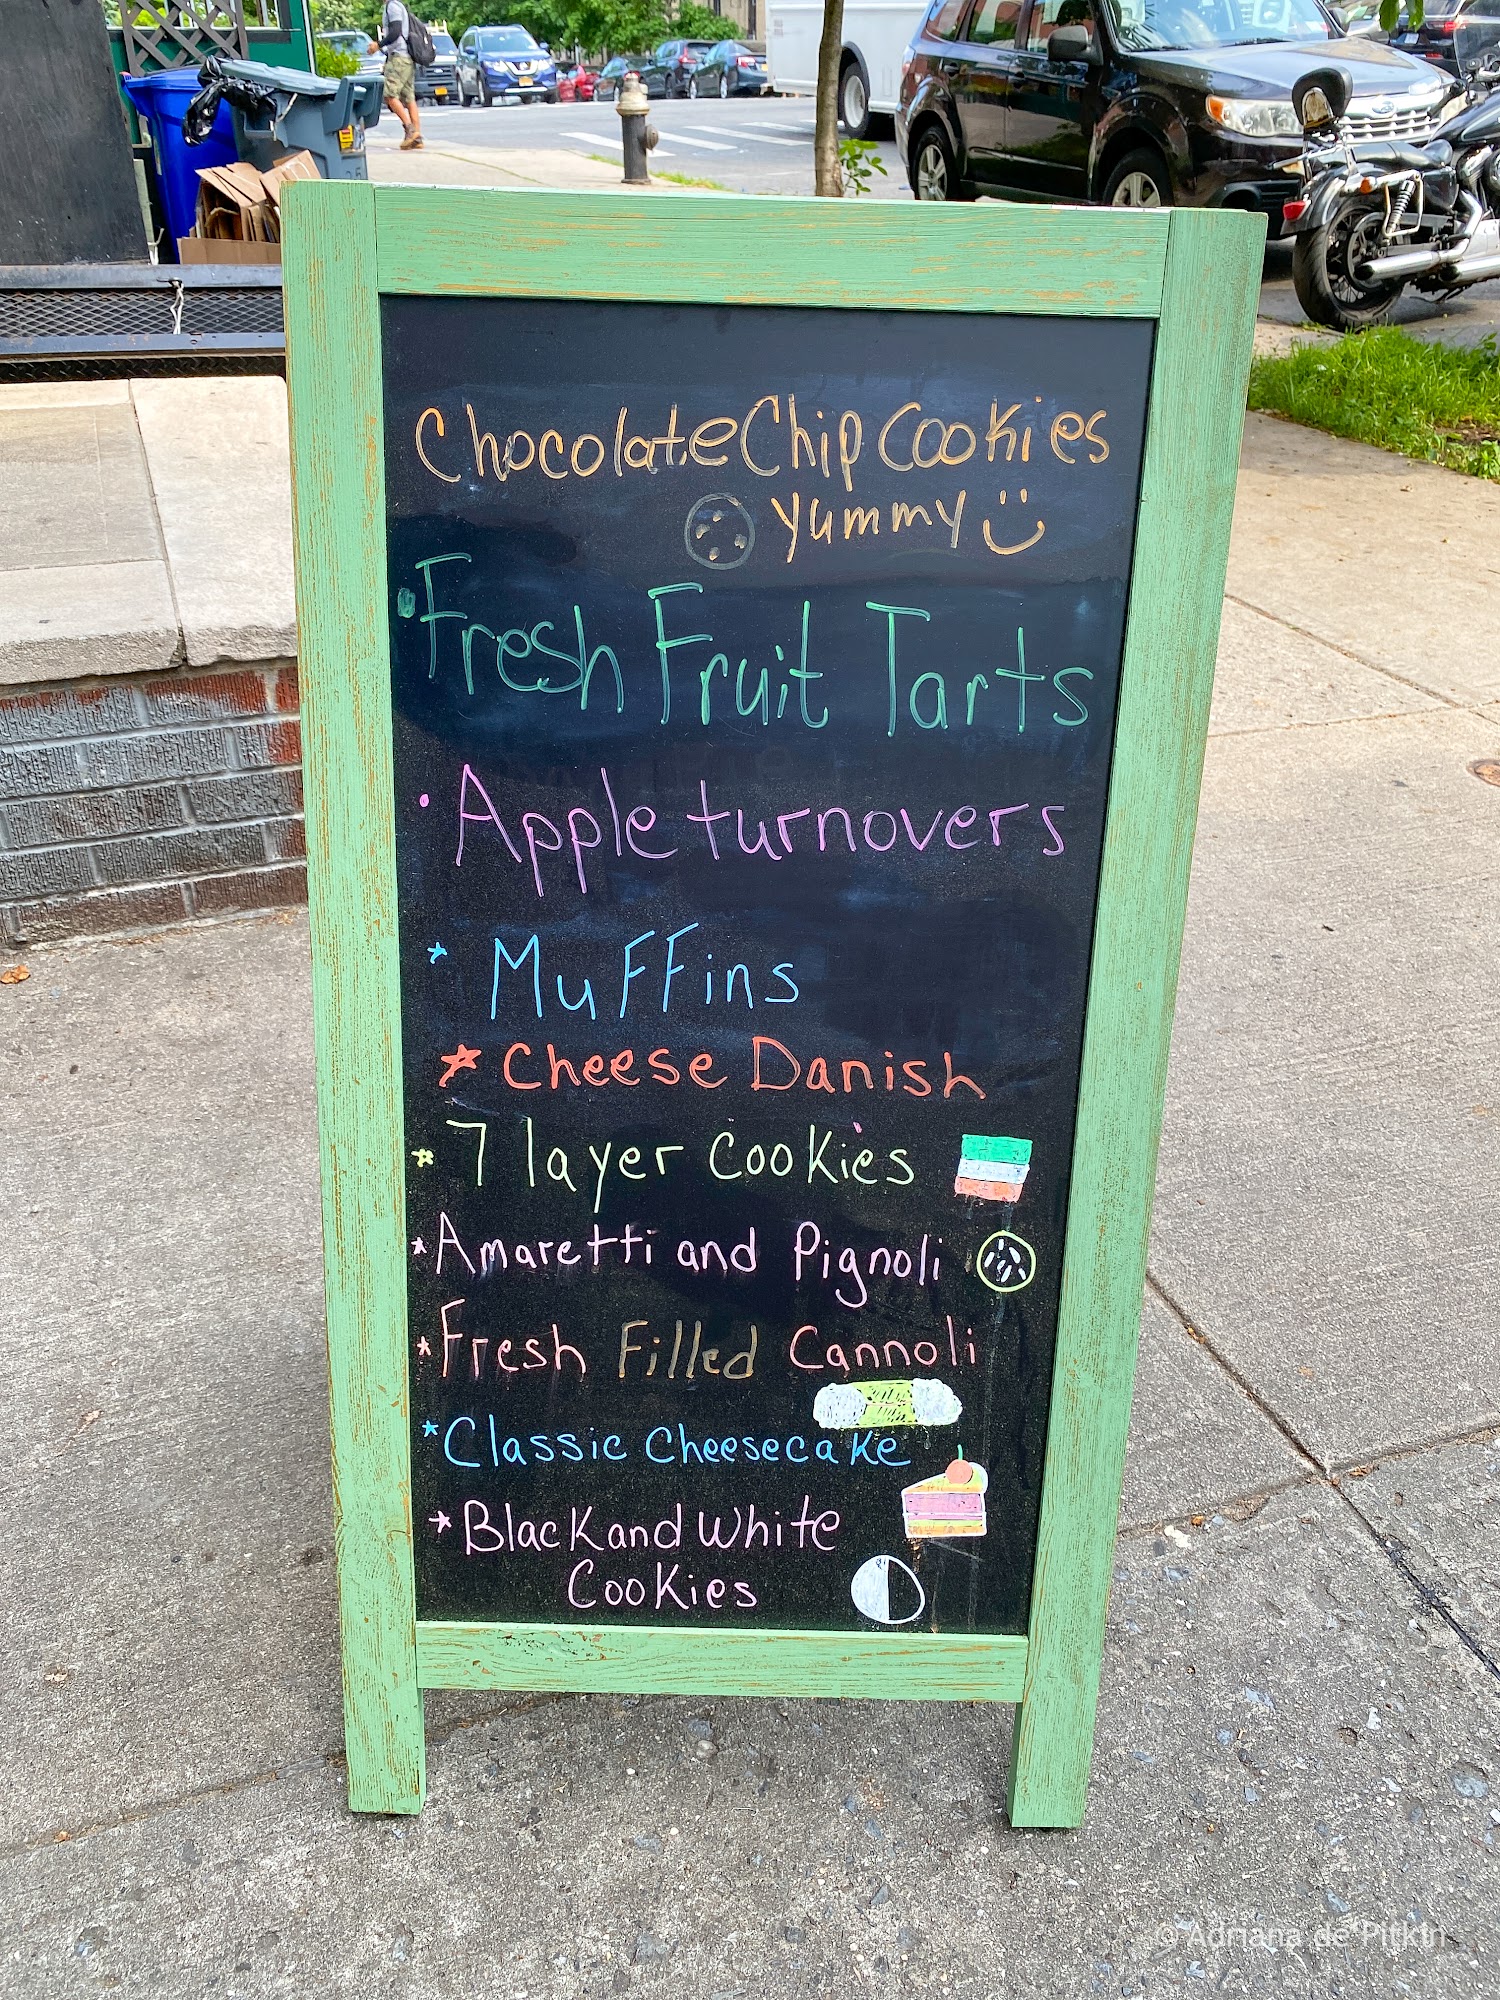 Chocolate Chip Cookies
Yummy
Fresh Fruit Tarts
Apple turnovers
* MuFFins
* Cheese Danish
* 7 layer Cookies
* Amaretti and Pignoli
* Fresh Filled Cannoli
* Classic Cheesecake
* Black and White
Cookies
© Adriana de Pitkin